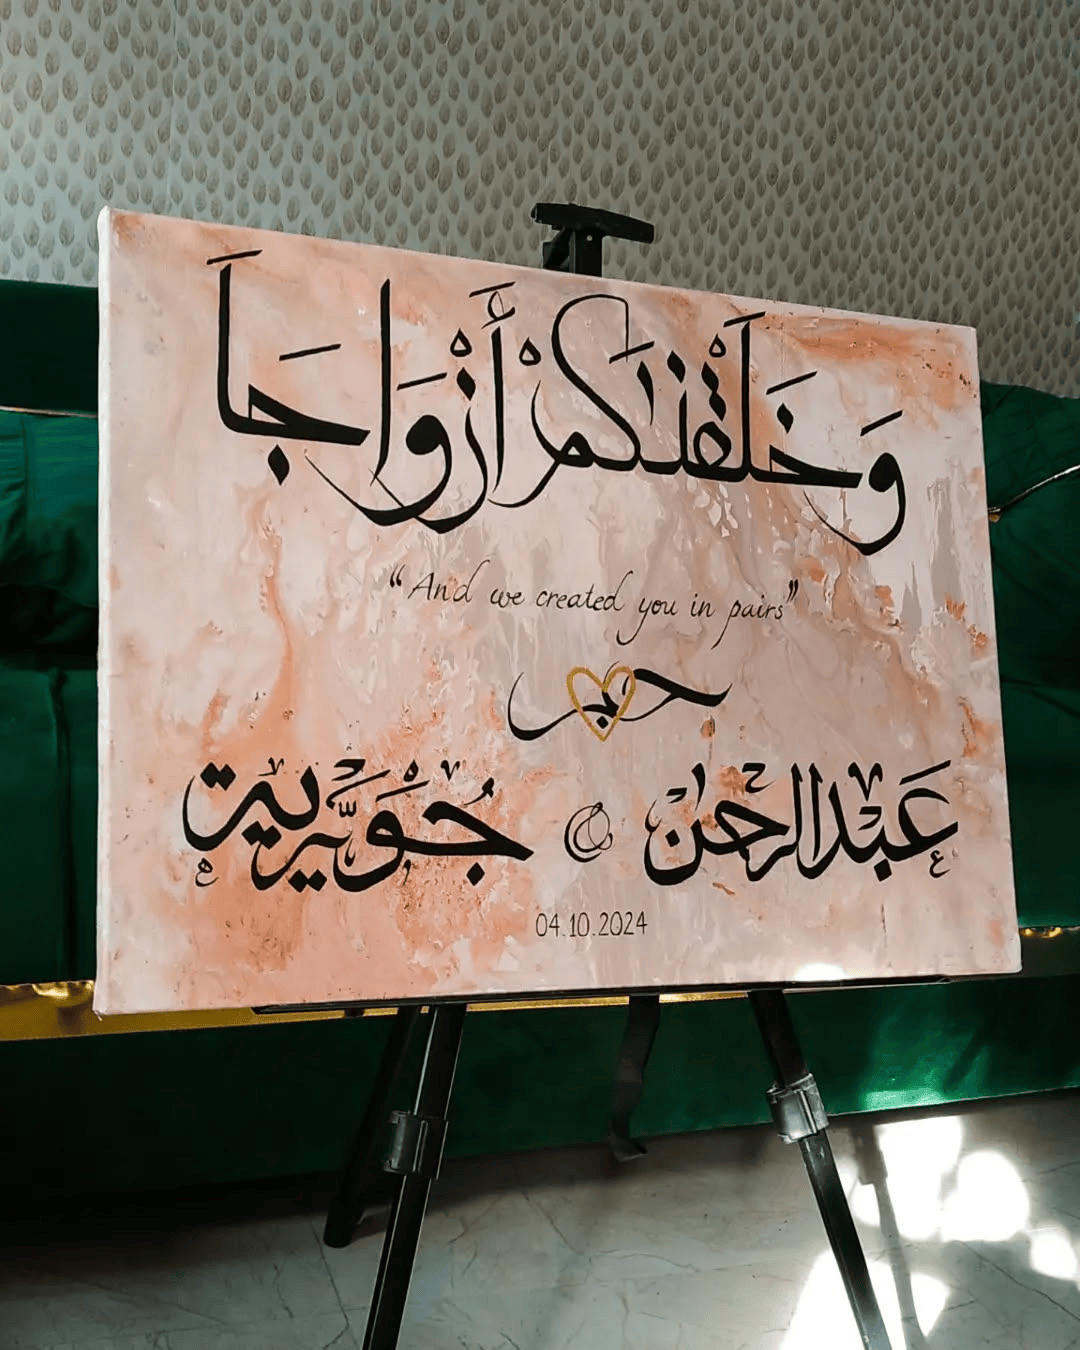 وَخَلَقْنَٰكُمْ أَزْوَاجاً
“And we created you in pairs”
حبر
عَبْدالرحمن & جُوَيْرِيَّة
04.10.2024